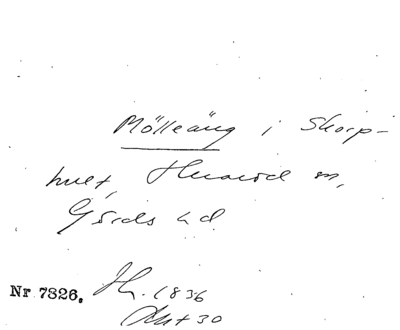 Mölleäng i Skorp-
hult, Huaröd sn,
Gärds hd.
Nr 7826. Th. 1836
Akt 30